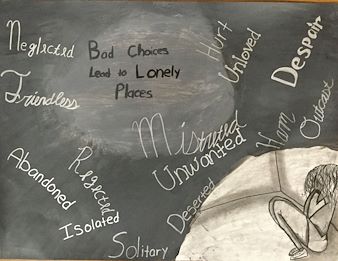 Neglected
Bad Choices
Lead to Lonely
Places
Hurt
Unloved
Despair
Friendless
Outcast
Unwanted
Abandoned
Rejected
Isolated
Deserted
Solitary